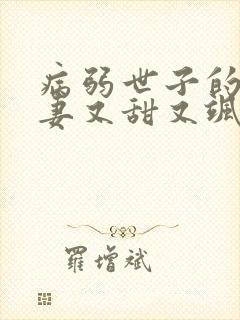 病弱世子的
妻又甜又飒
羅增斌